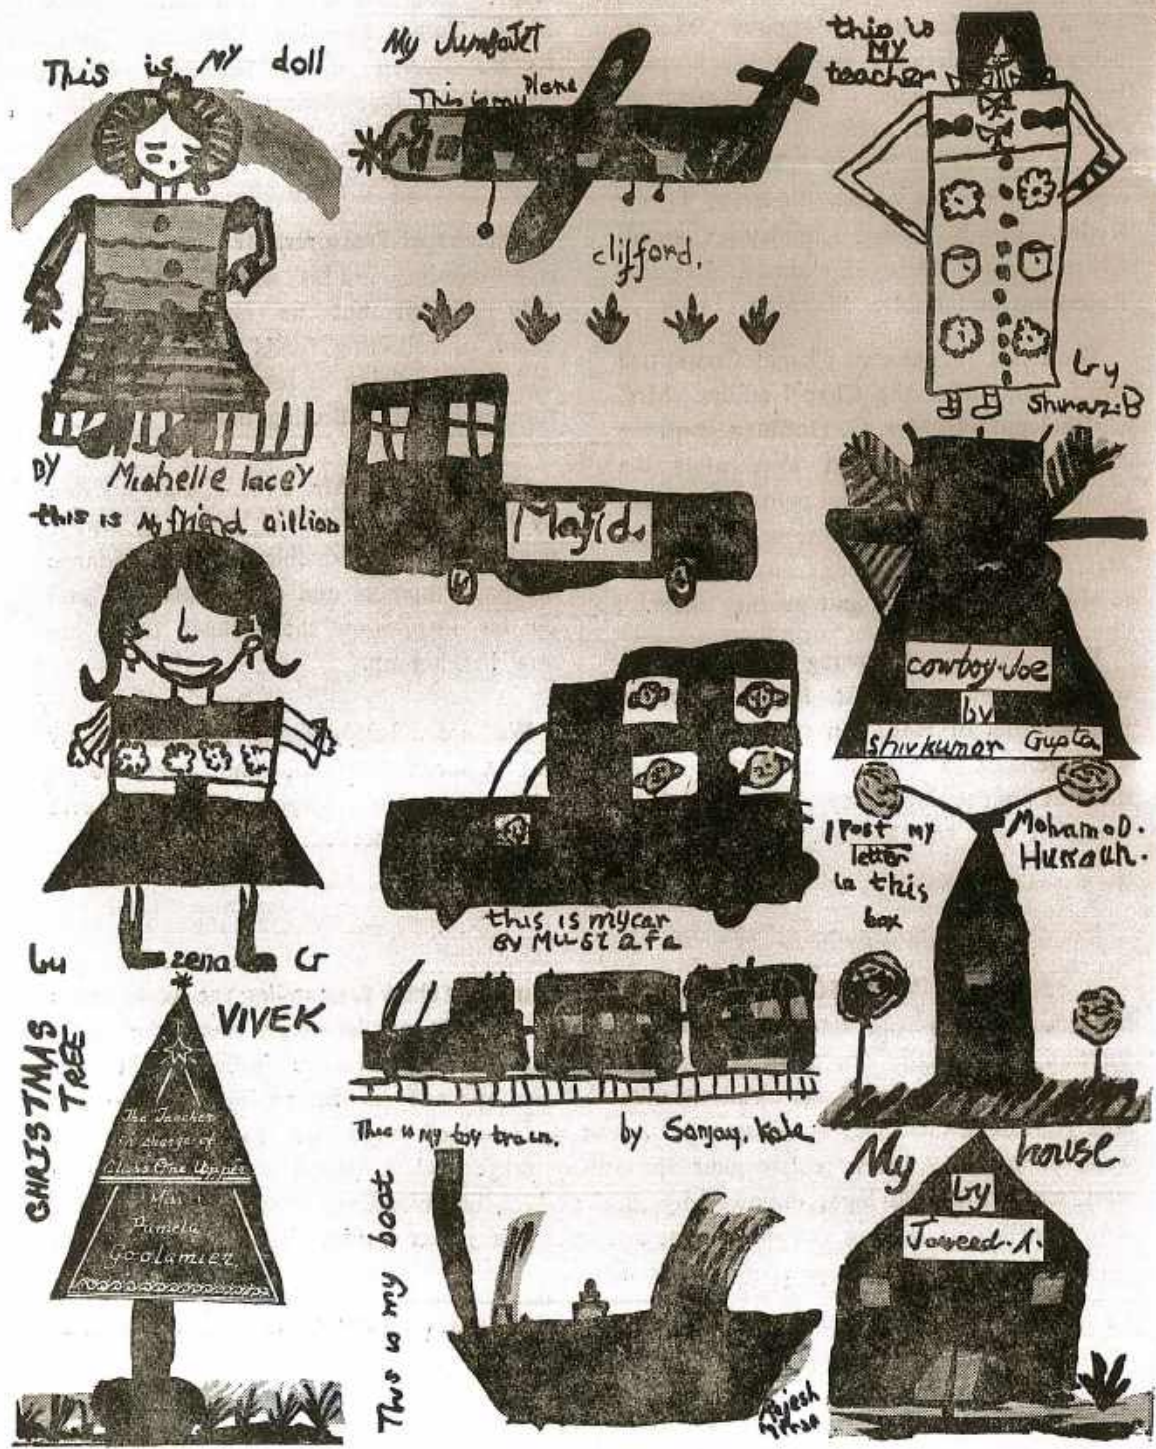 This is MY doll
BY Michelle lacey
this is My friend Gillian
by zena Cr
CHRISTMAS
TREE
VIVEK
The Teacher
in charge of
Class One Upper
Miss
Pamela
Goolamier
My JumboJET
This is my Plane
clifford.
Majid.
this is my car
BY MUSTafa
This is my toy train. by Sanjay. Kale
This is my boat
Rajesh
this is
MY
teacher
by
Shiraz.B
cowboy-Joe
by
Shivkumar Gupta
I Post my
letter
in this
box
MohamaD.
Hussain.
My house
by
Jaweed.A.